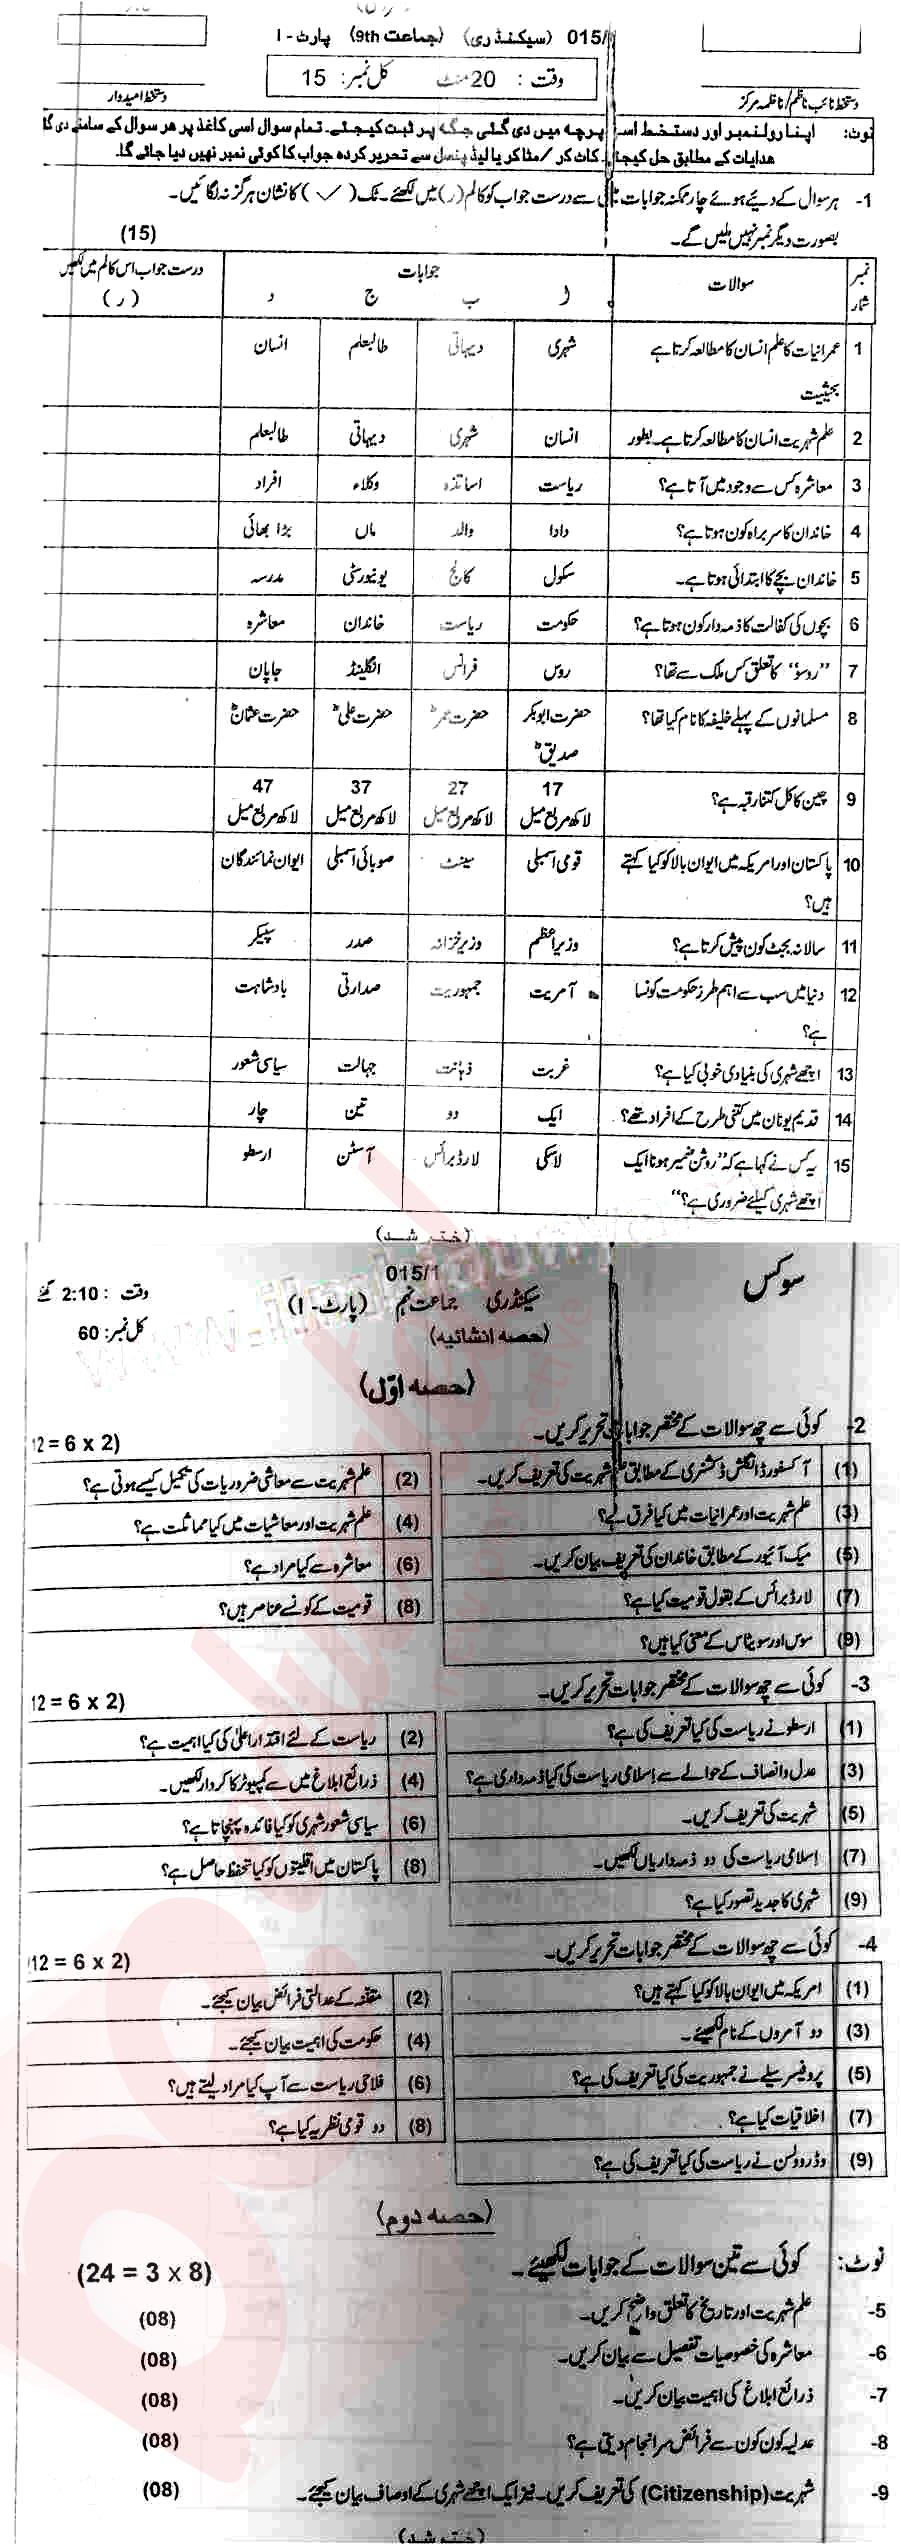 015/ (سیکنڈری) (جماعت 9th) پارٹ - I
وقت : 20 منٹ کل نمبر: 15
دستخط نائب ناظم/ناظمہ مرکز
دستخط امیدوار
نوٹ: اپنا رولنمبر اور دستخط اس پرچہ میں دی گئی جگہ پر ثبت کیجئے۔ تمام سوال اسی کاغذ پر ھر سوال کے سامنے دی گئ
ھدایات کے مطابق حل کیجئے۔ کاٹ کر / مٹا کر یا لیڈ پنسل سے تحریر کردہ جواب کا کوئی نمبر نھیں دیا جائے گا۔
1- ہر سوال کے دیئے ہوئے چار ممکنہ جوابات میں سے درست جواب کو کالم (ر) میں لکھئے۔ ٹک (✓) کا نشان ہرگز نہ لگائیں۔
بصورت دیگر نمبر نہیں ملیں گے۔ (15)
نمبر شمار سوالات جوابات درست جواب اس کالم میں لکھیں (ر)
ا ب ج د
1 عمرانیات کا علم انسان کا مطالعہ کرتا ہے بحیثیت شہری دیہاتی طالبعلم انسان
2 علم شہریت انسان کا مطالعہ کرتا ہے۔ بطور انسان شہری دیہاتی طالبعلم
3 معاشرہ کس سے وجود میں آتا ہے؟ ریاست اساتذہ وکلاء افراد
4 خاندان کا سربراہ کون ہوتا ہے؟ دادا والد ماں بڑا بھائی
5 خاندان بچے کا ابتدائی ہوتا ہے۔ سکول کالج یونیورسٹی مدرسہ
6 بچوں کی کفالت کا ذمہ دار کون ہوتا ہے؟ حکومت ریاست خاندان معاشرہ
7 "روسو" کا تعلق کس ملک سے تھا؟ روس فرانس انگلینڈ جاپان
8 مسلمانوں کے پہلے خلیفہ کا نام کیا تھا؟ حضرت ابوبکر صدیقؓ حضرت عمرؓ حضرت علیؓ حضرت عثمانؓ
9 چین کا کل کتنا رقبہ ہے؟ 17 لاکھ مربع میل 27 لاکھ مربع میل 37 لاکھ مربع میل 47 لاکھ مربع میل
10 پاکستان اور امریکہ میں ایوان بالا کو کیا کہتے ہیں؟ قومی اسمبلی سینٹ صوبائی اسمبلی ایوان نمائندگان
11 سالانہ بجٹ کون پیش کرتا ہے؟ وزیراعظم وزیر خزانہ صدر سپیکر
12 دنیا میں سب سے اہم طرز حکومت کونسا ہے؟ آمریت جمہوریت صدارتی بادشاہت
13 اچھے شہری کی بنیادی خوبی کیا ہے؟ غربت ذہانت جہالت سیاسی شعور
14 قدیم یونان میں کتنی طرح کے افراد تھے؟ ایک دو تین چار
15 یہ کس نے کہا ہے کہ "روشن ضمیر ہونا ایک اچھے شہری کیلئے ضروری ہے؟" لاسکی لارڈ برائس آسٹن ارسطو
(ختم شد)
سوکس
015/1
سیکنڈری جماعت نہم (پارٹ - I) وقت : 2:10 گھنٹے
(حصہ انشائیہ) کل نمبر: 60
(حصہ اوّل)
2- کوئی سے چھ سوالات کے مختصر جوابات تحریر کریں۔ 12 = 6 x 2)
(1) آکسفورڈ انگلش ڈکشنری کے مطابق علم شہریت کی تعریف کریں۔ (2) علم شہریت سے معاشی ضروریات کی تکمیل کیسے ہوتی ہے؟
(3) علم شہریت اور عمرانیات میں کیا فرق ہے؟ (4) علم شہریت اور معاشیات میں کیا مماثلت ہے؟
(5) میک آئیور کے مطابق خاندان کی تعریف بیان کریں۔ (6) معاشرہ سے کیا مراد ہے؟
(7) لارڈ برائس کے بقول قومیت کیا ہے؟ (8) قومیت کے کونسے عناصر ہیں؟
(9) سوس اور سویٹاس کے معنی کیا ہیں؟
3- کوئی سے چھ سوالات کے مختصر جوابات تحریر کریں۔ 12 = 6 x 2)
(1) ارسطو نے ریاست کی کیا تعریف کی ہے؟ (2) ریاست کے لئے اقتدار اعلیٰ کی کیا اہمیت ہے؟
(3) عدل و انصاف کے حوالے سے اسلامی ریاست کی کیا ذمہ داری ہے؟ (4) ذرائع ابلاغ میں سے کمپیوٹر کا کردار لکھیں۔
(5) شہریت کی تعریف کریں۔ (6) سیاسی شعور شہری کو کیا فائدہ پہنچاتا ہے؟
(7) اسلامی ریاست کی دو ذمہ داریاں لکھیں۔ (8) پاکستان میں اقلیتوں کو کیا تحفظ حاصل ہے؟
(9) شہری کا جدید تصور کیا ہے؟
4- کوئی سے چھ سوالات کے مختصر جوابات تحریر کریں۔ 12 = 6 x 2)
(1) امریکہ میں ایوان بالا کو کیا کہتے ہیں؟ (2) مقننہ کے عدالتی فرائض بیان کیجئے۔
(3) دو آمروں کے نام لکھیئے۔ (4) حکومت کی اہمیت بیان کیجئے۔
(5) پروفیسر سیلے نے جمہوریت کی کیا تعریف کی ہے؟ (6) فلاحی ریاست سے آپ کیا مراد لیتے ہیں؟
(7) اخلاقیات کیا ہے؟ (8) دو قومی نظریہ کیا ہے؟
(9) وڈرو ولسن نے ریاست کی کیا تعریف کی ہے؟
(حصہ دوم)
نوٹ: کوئی سے تین سوالات کے جوابات لکھیئے۔ (24 = 3 x 8)
5- علم شہریت اور تاریخ کا تعلق واضح کریں۔ (08)
6- معاشرہ کی خصوصیات تفصیل سے بیان کریں۔ (08)
7- ذرائع ابلاغ کی اہمیت بیان کریں۔ (08)
8- عدلیہ کون کون سے فرائض سرانجام دیتی ہے؟ (08)
9- شہریت (Citizenship) کی تعریف کریں۔ نیز ایک اچھے شہری کے اوصاف بیان کیجئے۔ (08)
(ختم شد)